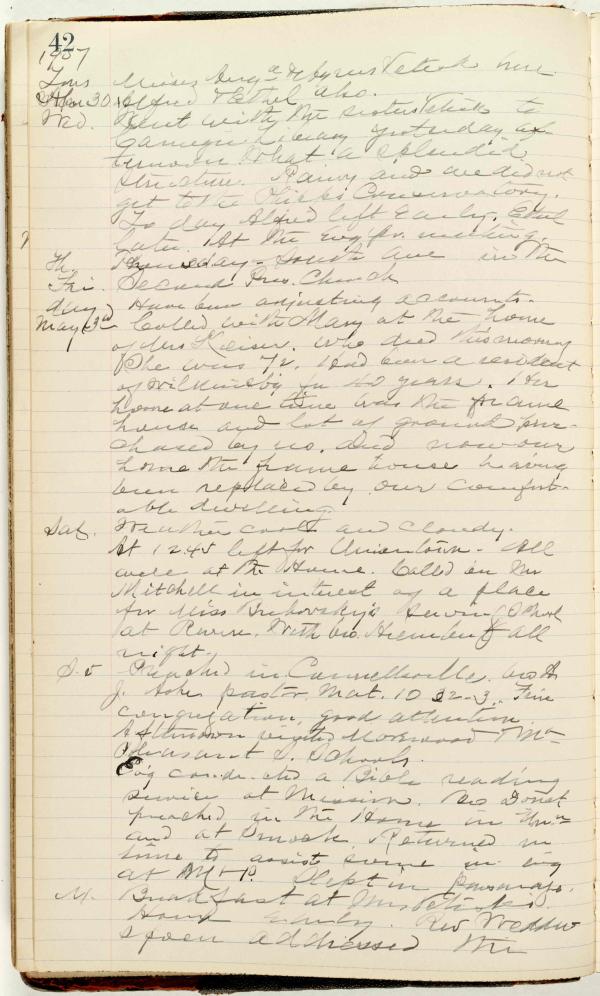 42
1907
Tues Misses here
Apr 30 Alfred & Ethel also.
Wed. Went with the sisters to
Carnegie Library yesterday af-
ternoon. What a splendid
structure. Rainy and we did not
get to the Phipps Conservatory.
To day Alfred left Early. Ethel
later. At the Eve'g pr. meeting.
Th. Thursday - South Ave in the
Fri. Second Pres. Church
day Have been adjusting accounts.
May 3rd Called with Mary at the home
of Mrs Kaiser. Who died this morning
She was 72. Had been a resident
of for 40 years. Her
home at one time was the frame
house and lot of ground pur-
chased by us. And now our
home the frame house having
been replaced by our comfort-
able dwelling.
Sat. Weather cool and cloudy.
At 12.45 left for Uniontown. All
well at the Home. Called on Mr
Mitchell in interest of a place
for Miss Sewing School
at . With bro. all
night.
S. 5 Preached in Connellsville. bro
J. pastor. Mat. 10 32-3. Fine
congregation, good attention.
Afternoon visited Morewood & Mt
Pleasant S. Schools.
Eve'g conducted a Bible reading
service at Mission. Bro
preached in the Home in
and at Smock. Returned in
time to assist in eve'g
at Mt P. Slept in parsonage.
M. Breakfast at Mrs
Home Early. Rev
addressed the